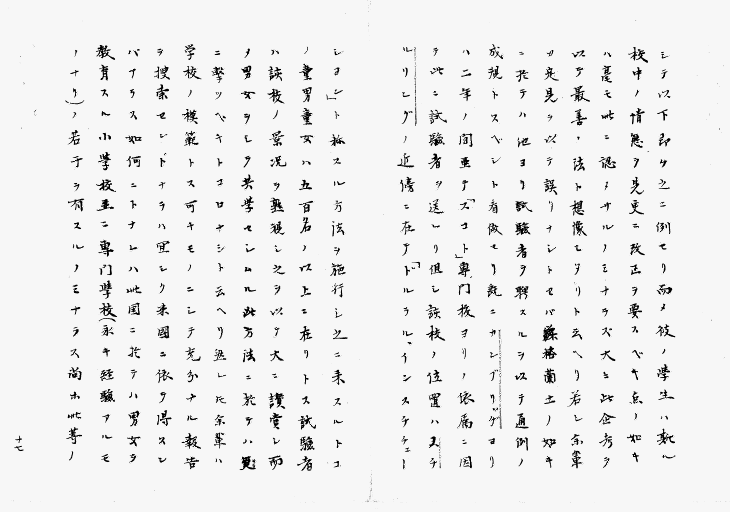 シテ以下即ケ之ニ例セリ而メ彼ノ學生ハ執ル
校中ノ情態ヲ見更ニ改正ヲ要スベキ点ノ如キ
ハ毫モ此ニ認メサルノミナラズ大ニ此企旁ヲ
以テ最善ノ法ト想像セタリト云ヘリ若シ余輩
カ発見ヲ以テ誤リナシトセバ蘇格蘭土ノ如キ
ニ於テハ他ヨリ試驗者ヲ聘スルヲ以テ通例ノ
成規トスベシト看做セリ既ニカンブリッヂヨリ
ハ二年ノ間亜テ「スコト」専門校ヨリノ依属ニ因
ヲ此ニ試驗者ヲ送レリ但シ該校ノ位置ハステ
ルリングノ近傍ニ在テ「ドルラル、インスチチュー
ション」ト称スル方法ヲ施行シ之ニ来スルトコ
ノ童男童女ハ五百名ノ以上ニ在リトス試驗者
ハ該校ノ景況ヲ熟視シ之ヲ以テ大ニ讃賞シ而
メ男女ヲシテ共学セシムル此方法ニ於テハ更
ニ撃ツベキトコロナシト云ヘリ然レ𪜈余輩ハ
学校ノ模範トス可キモノニシテ充分ナル報告
ヲ搜索セントナラハ宜シク米國ニ依テ得スン
バアラス如何ニトナレハ此国ニ於テハ男女ヲ
教育スル小學校並ニ専門學校(永キ経驗アルモ
ノナリ)ノ若干ヲ有スルノミナラス尚ホ此等ノ
十七